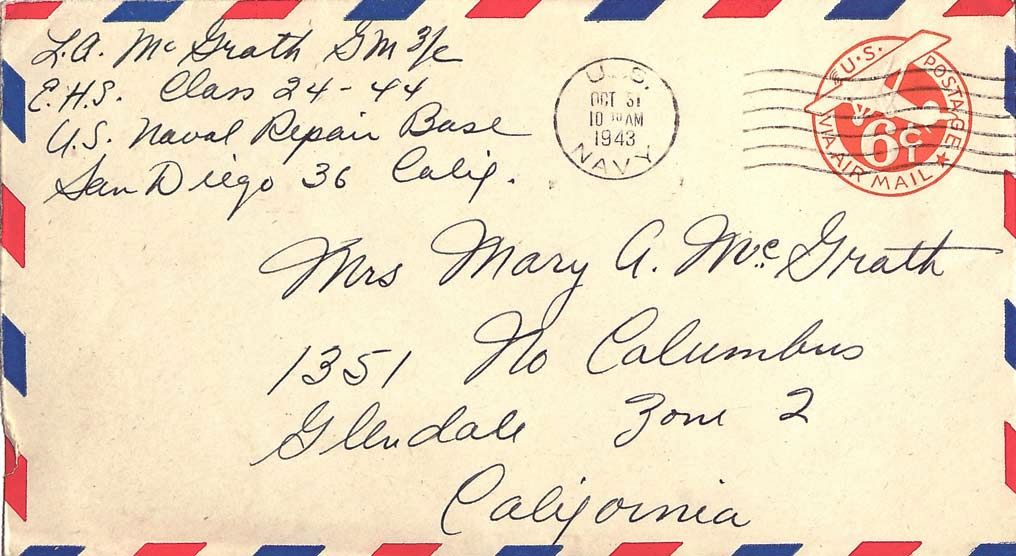 L.A. McGrath GM 3/c
E.H.S. Class 24-44
U.S. Naval Repair Base
San Diego 36 Calif.
U.S.
OCT 31
10 30 AM
1943
NAVY
U.S. POSTAGE
6¢
VIA AIR MAIL
Mrs Mary A. McGrath
1351 No Columbus
Glendale Zone 2
California